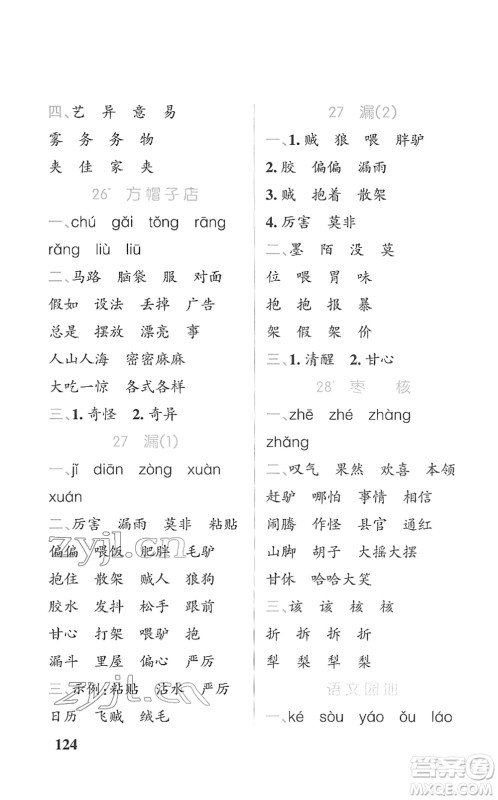 四、艺 异 意 易
雾 务 务 物
夹 佳 家 夹
26* 方帽子店
一、chú gǎi tǒng rāng
rǎng liù liū
二、马路 脑袋 服 对面
假如 设法 丢掉 广告
总是 摆放 漂亮 事
人山人海 密密麻麻
大吃一惊 各式各样
三、1. 奇怪 2. 奇异
27 漏(1)
一、jǐ diān zòng xuàn
xuán
二、厉害 漏雨 莫非 粘贴
偏偏 喂饭 肥胖 毛驴
抱住 散架 贼人 狼狗
胶水 发抖 松手 跟前
甘心 打架 喂驴 抱
漏斗 里屋 偏心 严厉
三、示例:粘贴 沾水 严厉
日历 飞贼 绒毛
124
27 漏(2)
一、1. 贼 狼 喂 胖驴
2. 胶 偏偏 漏雨
3. 贼 抱着 散架
4. 厉害 莫非
二、墨 陌 没 莫
位 喂 胃 味
抱 抱 报 暴
架 假 架 价
三、1. 清醒 2. 甘心
28* 枣 核
一、zhē zhé zhàng
zhǎng
二、叹气 果然 欢喜 本领
赶驴 哪怕 事情 相信
闹腾 作怪 县官 通红
山脚 胡子 大摇大摆
甘休 哈哈大笑
三、该 该 核 核
折 拆 拆 折
犁 梨 犁 梨
语文园地
一、ké sòu yáo ǒu láo
zyjl.cn
zyjl.cn
答案圈
MXQE.COM